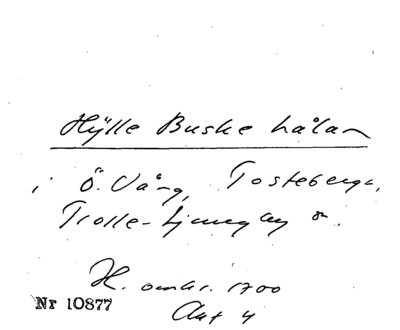 Hylle Buske hålan
i Ö. Vång, Tosteberga,
Trolle-Ljungby sn.
H. omkr. 1700
Nr 10877
Akt 4